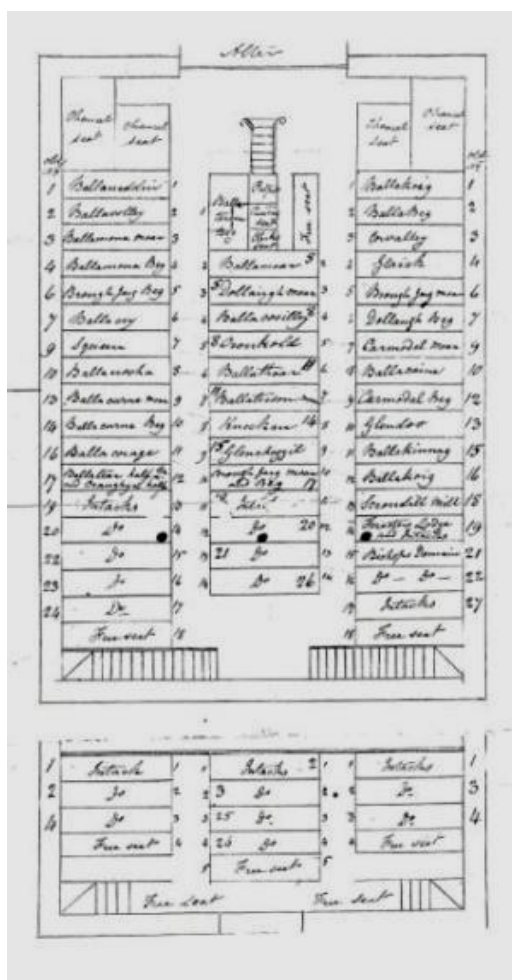 Altar
Chancel seat
Chancel seat
old No
1 Ballaneddin 1
2 Ballacolley 2
3 Ballamona moar 3
4 Ballamona Beg 4
6 Brough jarg Beg 5
7 Ballacry 6
9 Squeen 7
10 Ballacrosha 8
13 Ballacurne moar 9
14 Ballacurne Beg 10
16 Ballaconage 11
17 Ballalteen half
12
19 Intacks 13
20 Do 14
22 Do 15
23 Do 16
24 Do 17
Free seat 18
1
Pulpit
Clerks seat
Free seat
2 Ballamoar 5 2
3 5 Dollaugh moar 3
4 Ballavoirrey 4
5 8 Cronkold 5
6 Ballathoar 11 6
7 Ballaterson 7
8 Knockan 14 8
9 15 Glenshoggil 9
Brough jarg moar and Beg 17 10
11 11
12 Do 20 12
13 21 Do 13
14 Do 26 14
Chancel seat
Chancel seat
old No
1 Ballakoig 1
2 BallaBeg 2
3 Corvalley 3
4 Glaick 4
5 Brough jarg moar 6
6 Dollaugh Beg 7
7 Carmodel moar 9
8 Ballacaine 10
9 Carmodel Beg 12
10 Glendoo 13
11 Ballakinnag 15
12 Ballakoig 16
13 Scrondall mill 18
14 Lodge and Intacks 19
15 Bishops Domain 21
16 Do — Do — 22
17 Intacks 27
18 Free seat
1 Intack 1
2 Do 2
4 Do 3
Free seat 4
1 Intacks 2 1
2 3 Do 2
3 25 Do 3
4 26 Do 4
5 Free seat 5
1 Intacks 1
2 Do 3
3 Do 4
4 Free seat
Free seat
Free seat